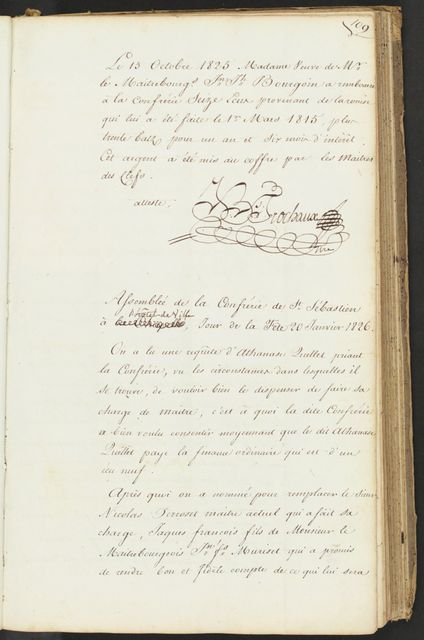 109
Le 15 Octobre 1825 Madame Veuve de Mr
le Maitrebourgs Jn Jh Bourgoin a rembourse
à la Confrérie Seize Ecus provenant de la remise
qui lui a été faite le 1er Mars 1815, plus
trente batz pour un an et six mois d'intérêt.
Cet argent a été mis au coffre par les Maitres
des Clefs.
atteste,
Frochaux
Assemblée de la Confrérie de St Sébastien
à l'hôtel de Ville Jour de la Fête 20 Janvier 1826.
On a lu une requête d'Athanase Quillet priant
la Confrérie, vu les circonstances dans lesquelles il
se trouve, de vouloir bien le dispenser de faire sa
charge de maitre, c'est à quoi la dite Confrérie
a bien voulu consentir moyennant que le dit Athanase
Quillet paye la finance ordinaire qui est d'un
écu neuf.
Après quoi on a nommé pour remplacer le Sieur
Nicolas Perroset maitre actuel qui a fait sa
charge, Jaques françois fils de Monsieur le
Maitrebourgeois Muriset qui a promis
de rendre bon et fidèle compte de ce qui lui sera